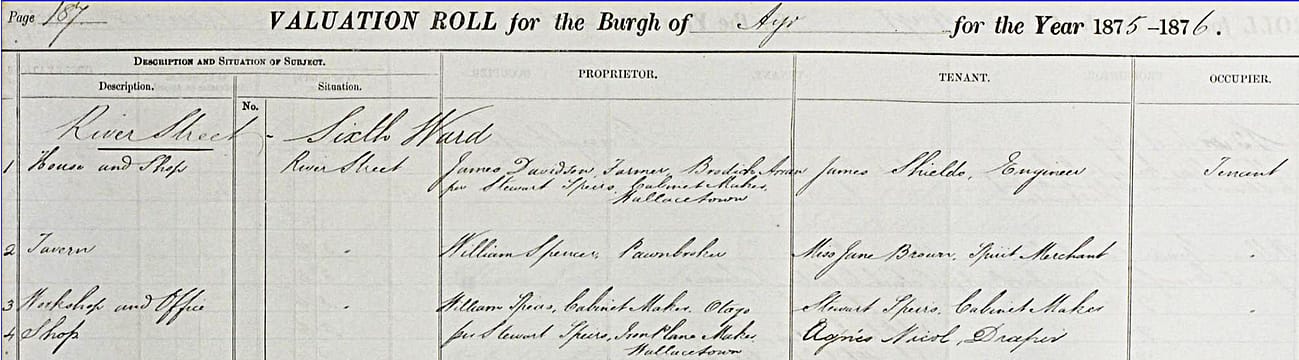 Page 187 VALUATION ROLL for the Burgh of Ayr for the Year 1875-1876.
DESCRIPTION AND SITUATION OF SUBJECT. PROPRIETOR. TENANT. OCCUPIER.
Description. No. Situation.
River Street - Sixth Ward
1 House and Shop River Street James Davidson, Farmer, Brodick, Arran James Shields, Engineer Tenant
per Stewart Speirs, Cabinet Maker,
Wallacetown
2 Tavern " William Spencer, Pawnbroker Miss Jane Brown, Spirit Merchant "
3 Workshop and Office " William Speirs, Cabinet Maker, Otago Stewart Speirs, Cabinet Maker "
4 Shop per Stewart Speirs, Iron Plane Maker, Agnes Nicol, Draper
Wallacetown